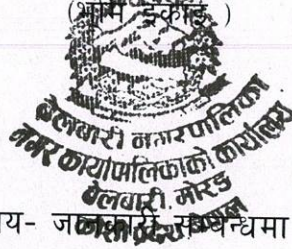 (भूमि इकाई)
बेलबारी नगरपालिका
नगर कार्यपालिकाको कार्यालय
बेलबारी, मोरङ
य- जानकारी सम्बन्धमा